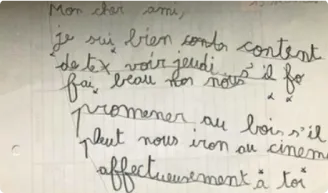 Mon cher ami,
je sui bien contr content
de te x voir jeudi, s'il fo
fai beau non nous
promener au bois s'il
pleut nous iron au cinem
affectueusement à toi